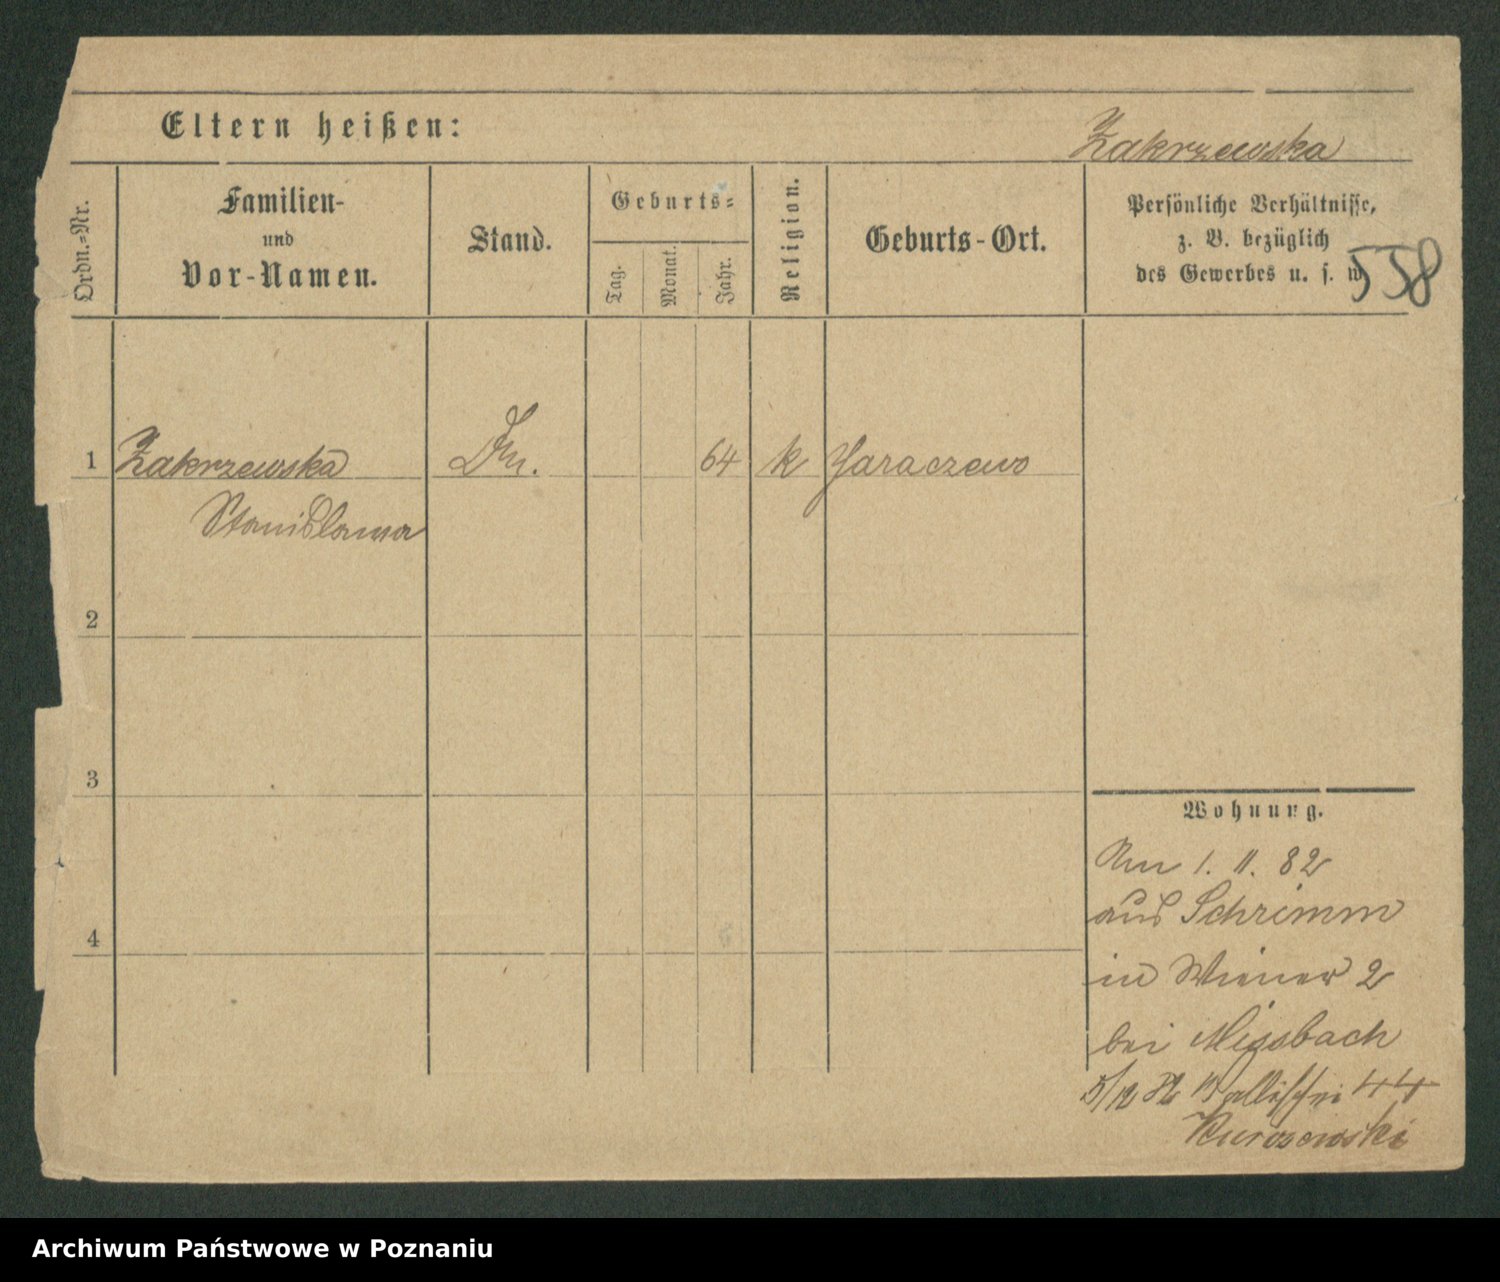 Eltern heißen:
Zakrzewska
Ordn.=Nr.
Familien-
und
Vor-Namen.
Stand.
Geburts=
Tag.
Monat.
Jahr.
Religion.
Geburts-Ort.
Persönliche Verhältnisse,
z. B. bezüglich
des Gewerbes u. s. w.
558
1 Zakrzewska 64 k Jaraczewo
Stanislawa
2
3
4
Wohnung.
Am 1. 11. 82
aus Schrimm
in Wiener 2
bei Migsbach
5/12 82 Wallischei 44
Archiwum Państwowe w Poznaniu